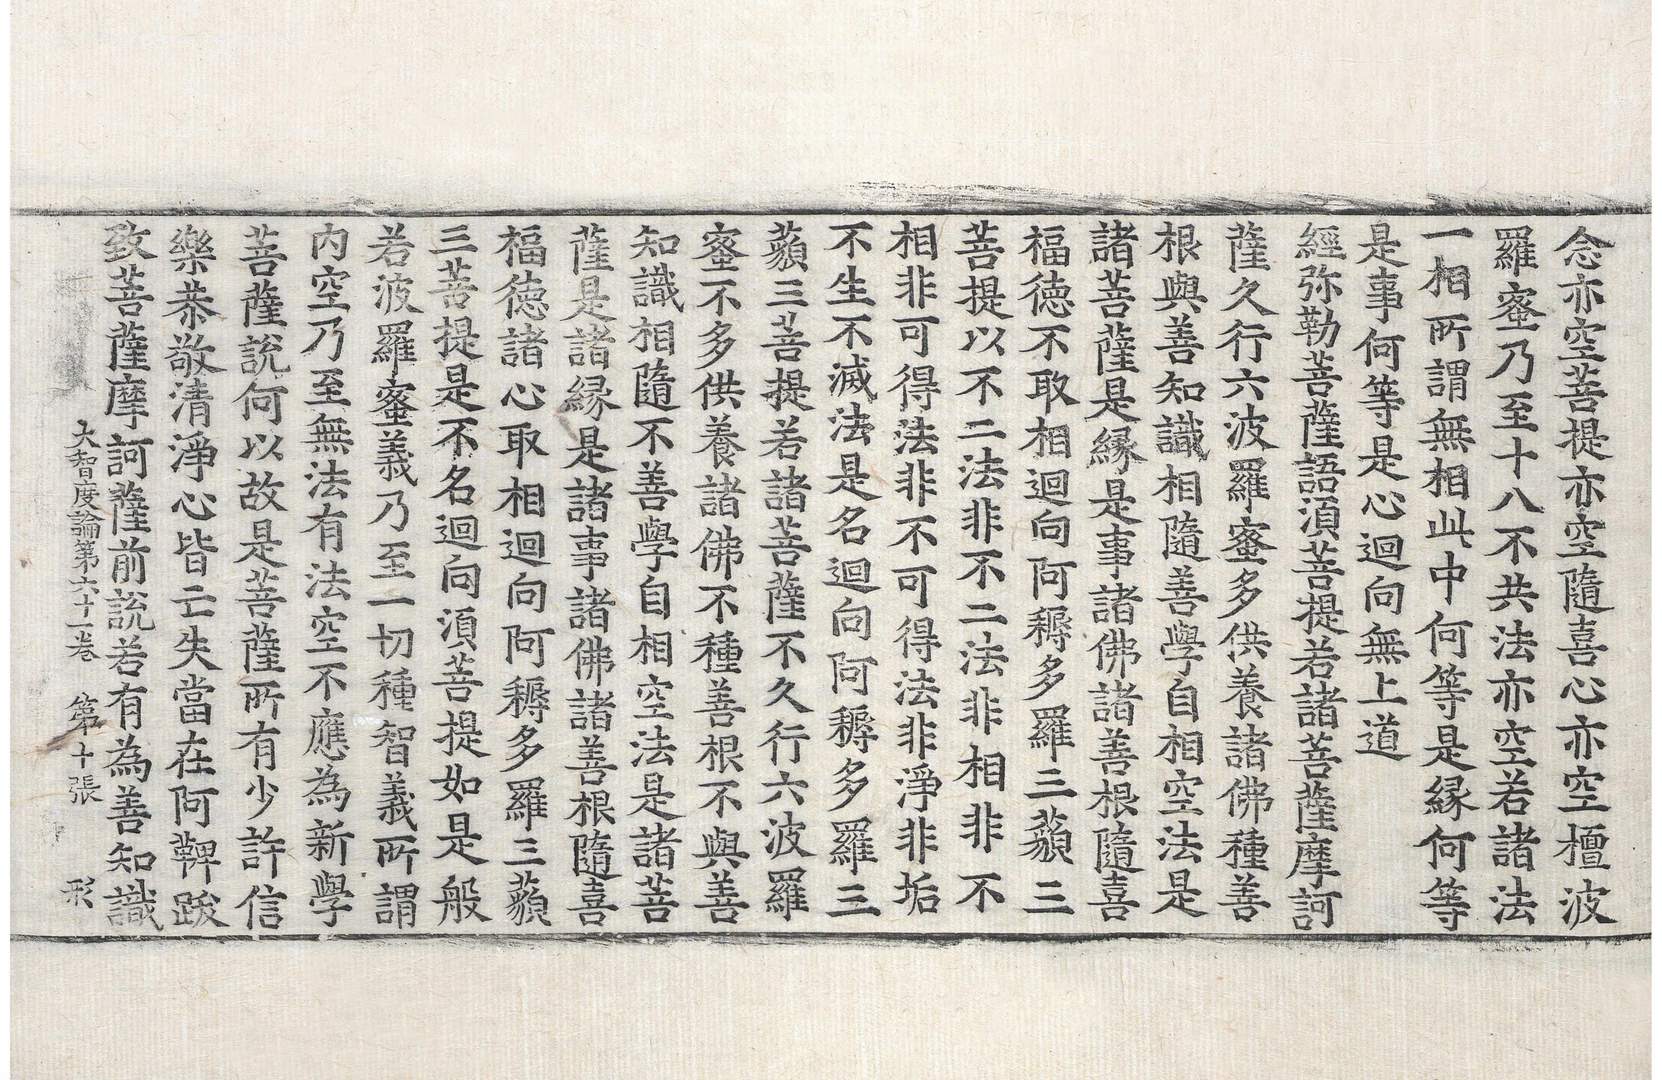 念亦空菩提亦空隨喜心亦空檀波
羅蜜乃至十八不共法亦空若諸法
一相所謂無相此中何等是緣何等
是事何等是心迴向無上道
經弥勒菩薩語湏菩提若諸菩薩摩訶
薩久行六波羅蜜多供養諸佛種善
根與善知識相隨善學自相空法是
諸菩薩是緣是事諸佛諸善根隨喜
福德不取相迴向阿耨多羅三藐三
菩提以不二法非不二法非相非不
相非可得法非不可得法非淨非垢
不生不滅法是名迴向阿耨多羅三
藐三菩提若諸菩薩不久行六波羅
蜜不多供養諸佛不種善根不與善
知識相隨不善學自相空法是諸菩
薩是諸緣是諸事諸佛諸善根隨喜
福德諸心取相迴向阿耨多羅三藐
三菩提是不名迴向湏菩提如是般
若波羅蜜義乃至一切種智義所謂
內空乃至無法有法空不應為新學
菩薩說何以故是菩薩所有少許信
樂恭敬清淨心皆亡失當在阿鞞跋
致菩薩摩訶薩前說若有為善知識
大智度論第六十一卷　第十張　形